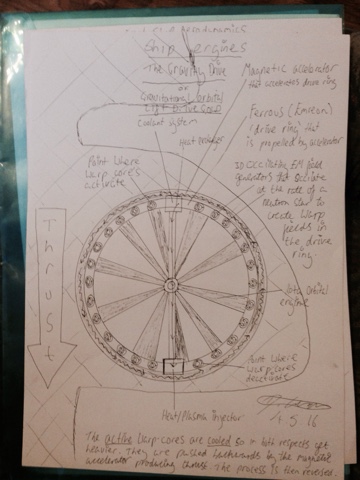 Ship Engines
The Gravity Drive
or
Gravitational orbital
Coolant system
Heat exchanger
Magnetic accelerator
that accelerates drive ring
Ferrous
'drive ring' that
is propelled by accelerator
Point where
warp cores
activate
30 oscillating EM field
generators that oscillate
at the rate of a
neutron star to
create warp
fields in
the drive
ring.
orbital
engine
Thrust
Point where
warp cores
deactivate
Heat/Plasma injector
4.5.16
The active warp cores are cooled so in both respects get
heavier. They are pushed backwards by the magnetic
accelerator producing thrust. The process is then reversed.